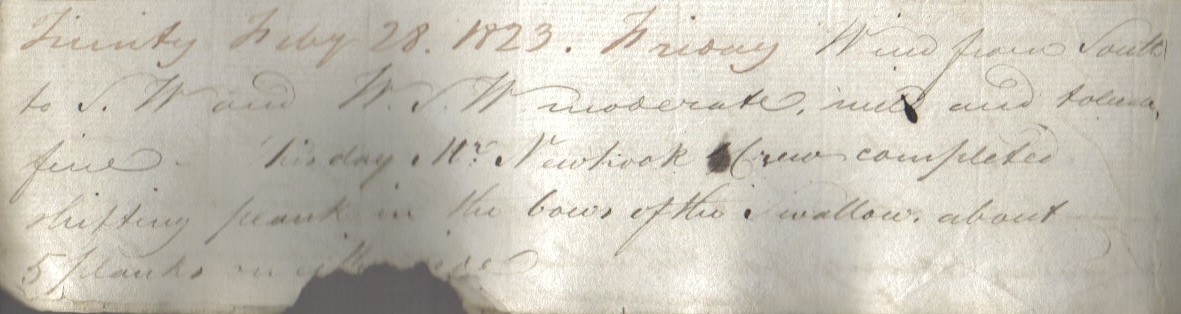 Trinity Feby 28. 1823. Friday Wind from South
to S. W and W. S. W moderate, mild and tolera,
fine - This day Mr. Newhook & Crew completed
shifting plank in the bows of the Swallow. about
5 planks on either side